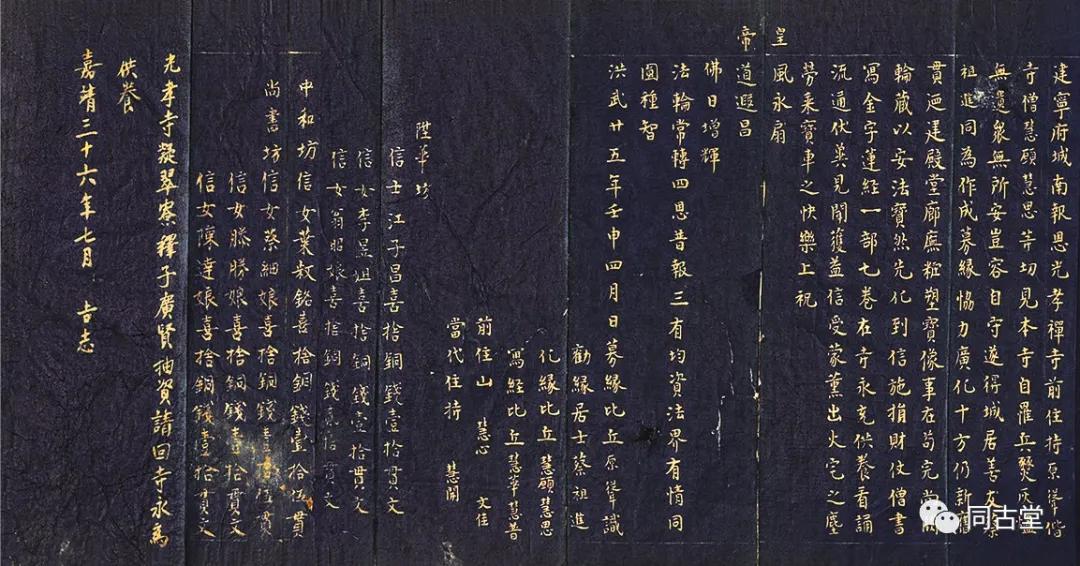 建寧府城南報恩光孝禪寺前住持原聳偕
寺僧慧願慧思等切見本寺自罹兵燹灰燼
無遺眾無所安豈容自守遂得城居善友蔡
祖進同為作成募緣恊力廣化十方仍新舊
貫洍建殿堂廊廡粧塑寶像事在苟完尚闕
輪藏以安法寶然先化到信施捐財仗僧書
寫金字蓮經一部七卷在寺永充供養看誦
流通伏兾見聞獲益信受蒙薰出火宅之塵
勞乘寶車之快樂上祝
皇
帝
風永扇
道遐昌
佛日增輝
法輪常轉四恩普報三有均資法界有情同
圓種智
洪武廿五年壬申四月日募緣比丘原聳識
勸緣居士蔡祖進
化緣比丘慧願慧思
寫經比丘慧華慧普
前住山 慧心 文佳
當代住持 慧開
陞華坊
信士江子昌喜捨銅錢壹拾貫文
信女李昱姐喜捨銅錢壹拾貫文
信女翁昭娘喜捨銅錢貳佰貫文
中和坊信女葉叔銘喜捨銅錢壹拾伍貫
尚書坊信女蔡細娘喜捨銅錢壹 伍貫
信女滕勝娘喜捨銅錢壹拾貫文
信女陳達娘喜捨銅錢壹拾貫文
光孝寺凝翠寮釋子廣賢抽資請回寺永為
供養
嘉靖三十六年七月 吉志
同古堂